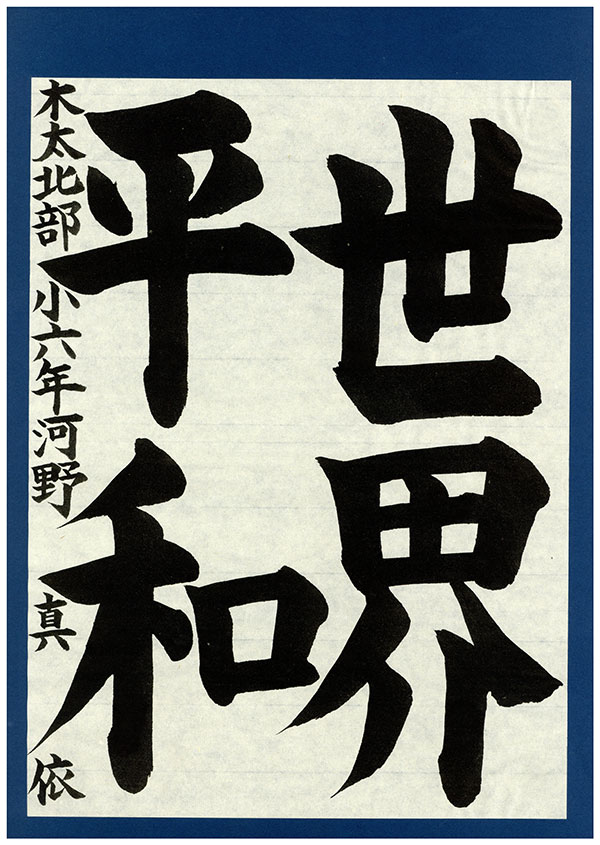 世界
平和
木太北部 小六年 河野 真依